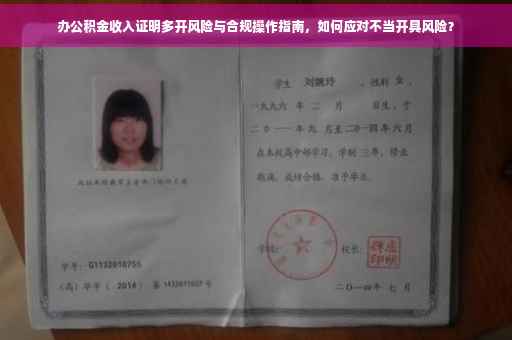 办公积金收入证明多开风险与合规操作指南，如何应对不当开具风险？
学生 刘婉玲 ，性别 女 ，
一九九六 年 二 月 日生，于
二〇一一年九 月至二〇一四年 六 月
在本校高中部学习，学制 三年，修业
期满，成绩合格，准予毕业。
学校： 校长：
学号： G1132010755
（高）毕字（ 2014 ）第 1432011027 号
二〇一四年 七 月